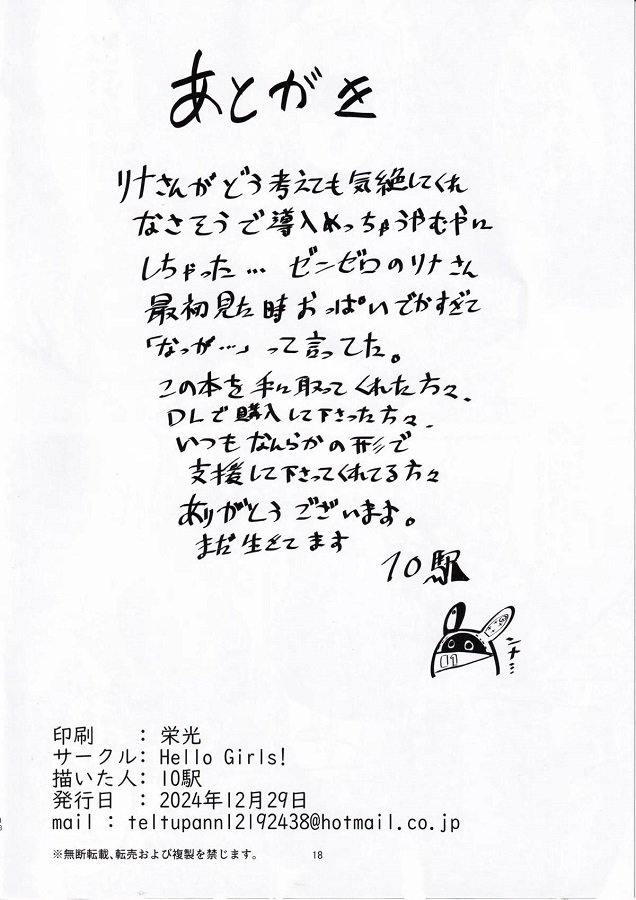 あとがき
リナさんがどう考えても気絶してくれ
なさそうで導入めっちゃうやむやに
しちゃった… ゼンゼロのリナさん
最初見た時おっぱいでかすぎて
「なっが…」って言ってた。
この本を手に取ってくれた方々、
DLで購入して下さった方々、
いつもなんらかの形で
支援して下さってくれてる方々
ありがとうございます。
まだ生きてます
10駅
ンナ…
印刷 : 栄光
サークル: Hello Girls!
描いた人: 10駅
発行日 : 2024年12月29日
mail : teltupann12192438@hotmail.co.jp
※無断転載、転売および複製を禁じます。
18